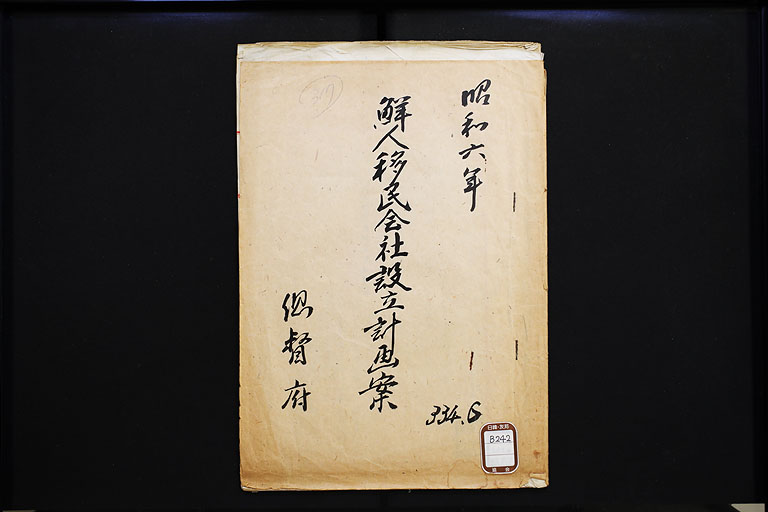 昭和六年
鮮人移民会社設立計画案
総督府
334.6
日韓・友邦
B242
協会